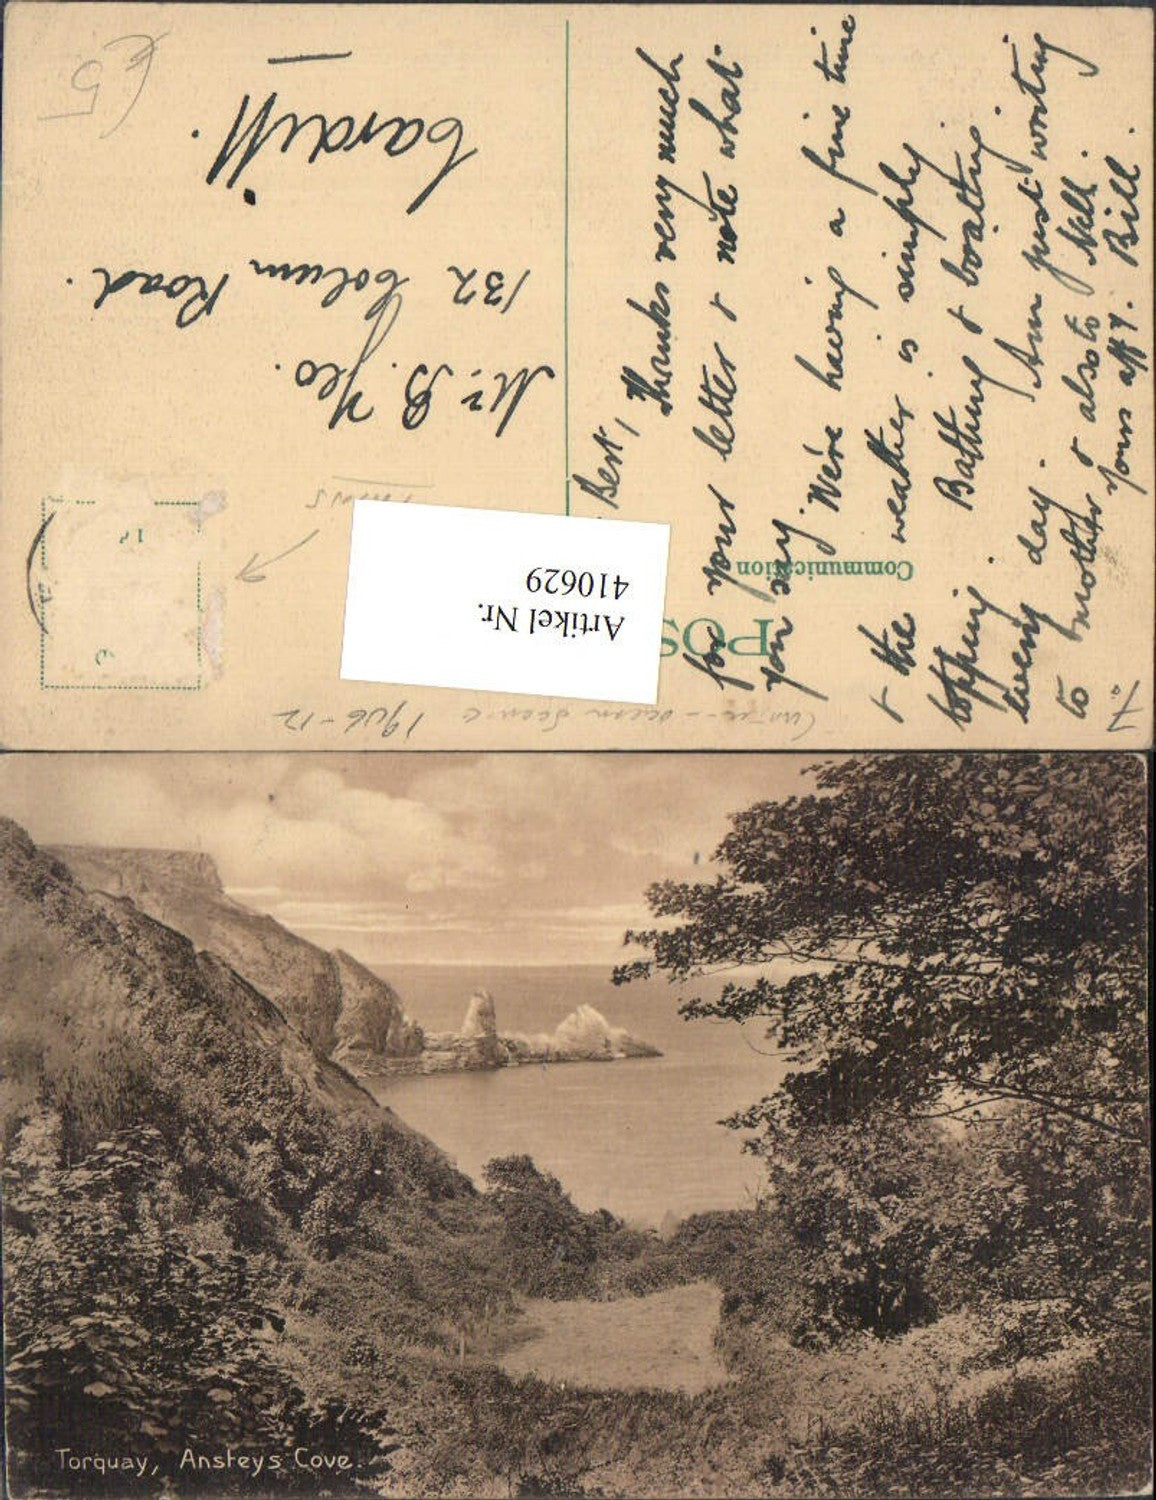 POS
Communication
Bert,
Thanks very much
for your letter & note what
you say. We're having a fine time
& the weather is simply
topping. Bathing & boating
every day. Am just writing
to brother & also to Nell.
Yours affy. Bill.
Mr. B. Yeo.
132 Colum Road.
Cardiff.
£5
1906-12
7.
Artikel Nr.
410629
Torquay, Ansteys Cove.